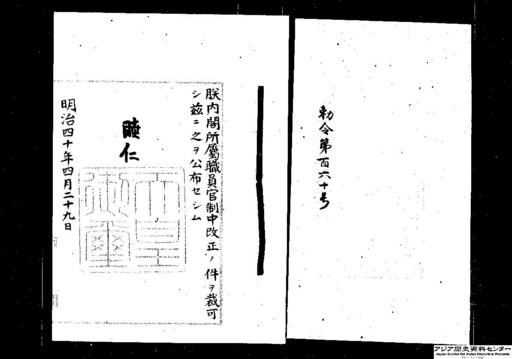 勅令第百六十号
朕内閣所属職員官制中改正ノ件ヲ裁可
シ茲ニ之ヲ公布セシム
睦仁
天皇御璽
明治四十年四月二十九日
アジア歴史資料センター
Japan Center for Asian Historical Records